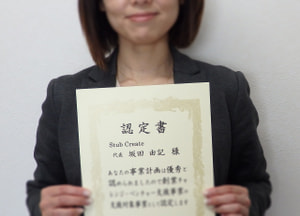 認定書
Stub Create
代表 坂田 由記 様
あなたの事業計画は優秀と
認められましたので創業チャ
レンジ・ベンチャー支援事業の
支援対象事業として認定します